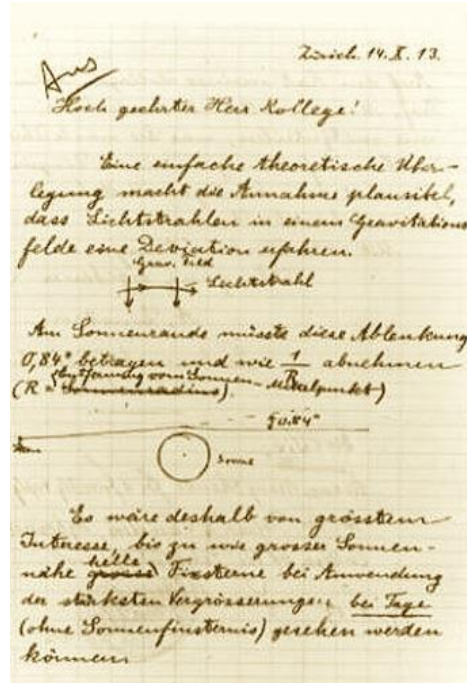 Zürich. 14. X. 13.
Hoch geehrter Herr Kollege!
Eine einfache theoretische Über-
legung macht die Annahme plausibel,
dass Lichtstrahlen in einem Gravitations
felde eine Deviation erfahren.
Grav. Feld
Lichtstrahl
Am Sonnenrande müsste diese Ablenkung
0,84" betragen und wie 1/R abnehmen
(R = Sonnenradius Entfernung vom Sonnen-Mittelpunkt)
0.84"
Sonne
Es wäre deshalb von grösstem
Interesse, bis zu wie grosser Sonnen-
nähe grosse helle Fixsterne bei Anwendung
der stärksten Vergrösserungen bei Tage
(ohne Sonnenfinsternis) gesehen werden
können.